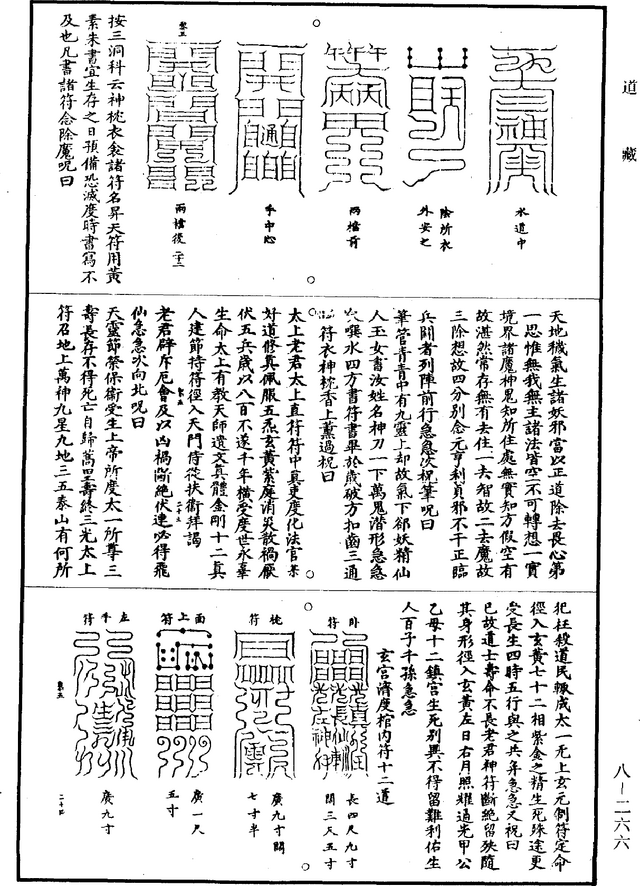 道藏
水道中
除所衣
外安之
兩檐前
手中心
兩檐後
按三洞科云神枕衣衾諸符名昇天符用黃
素朱書宜生存之日預備恐滅度時書寫不
及也凡書諸符念除魔呪曰
天地穢氣生諸妖邪當以正道除去長心第
一思惟無我無主諸法皆空不可轉想一實
境界諸魔神鬼知所住處無實知方假空有
故湛然常存無有去住一去智故二去魔故
三除想故四分別念元亨利貞邪不干正臨
兵鬪者列陣前行急急次祝筆呪曰
筆管青青中有九靈上却故氣下卻妖精仙
人玉女書汝姓名神刀一下萬鬼潛形急急
次噀水四方書符書畢於歲破方扣齒三通
符衣神枕香上薰過祝曰
太上老君太上直符符中真吏度化法官
好道修真佩服五炁玄黃紫庭消災散禍厭
伏五兵歲以八百不遂千年橫受度世永辜
生命太上有教天師遺文真體金剛十二真
人建節持符徑入天門侍從扶衞拜謁
老君辟斥厄會及以凶禍斷絕伏連必得飛
仙急急次向北呪曰
天靈節榮保衞受生上帝所度太一所尊三
壽長存不得死亡自歸萬里壽終三光太上
符召地上萬神九星九地三五泰山有何所
犯枉殺道民輒成太一无上玄元倒符定命
徑入玄黃七十二相紫金之精生死殊途更
受長生四時五行與之共年急急又祝曰
已故道士壽命不長老君神符斷絕留殃隨
其身形徑入玄黃左日右月照耀過光甲公
乙母十二鎮宮生死別異不得留難利佑生
人百子千孫急急
玄宮濟度棺內符十二道
卧符
長四尺九寸
闊三尺五寸
枕符
廣九寸闊
七寸半
面上符
廣一尺
五寸
左手符
廣九寸
八－二六六